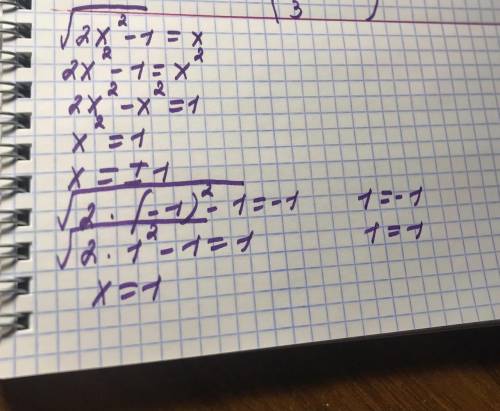 3 )
√(2x² - 1) = x
2x² - 1 = x²
2x² - x² = 1
x² = 1
x = ±1
√(2 · (-1)² - 1) = -1 1 = -1
√(2 · 1² - 1) = 1 1 = 1
x = 1